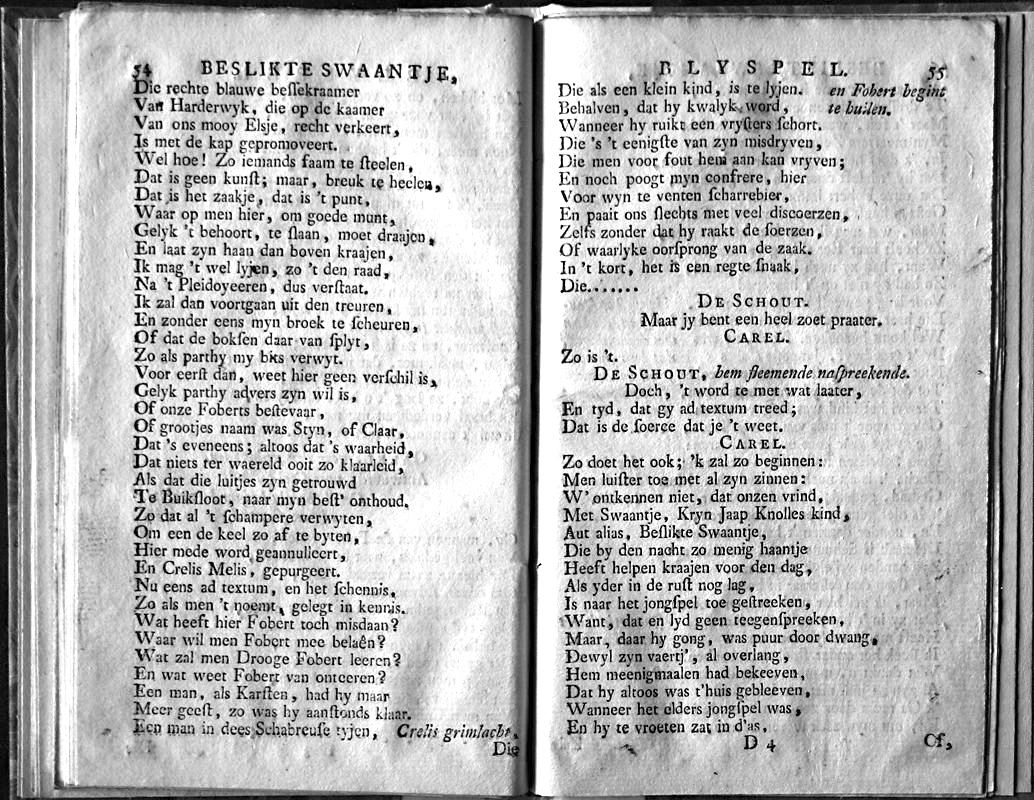 54 BESLIKTE SWAANTJE,
Die rechte blauwe beſſekraamer
Van Harderwyk, die op de kaamer
Van ons mooy Elsje, recht verkeert,
Is met de kap gepromoveert.
Wel hoe! Zo iemands faam te ſteelen,
Dat is geen kunſt; maar, breuk te heelen,
Dat is het zaakje, dat is 't punt,
Waar op men hier, om goede munt,
Gelyk 't behoort, te ſlaan, moet draajen,
En laat zyn haan dan boven kraajen,
Ik mag 't wel lyjen, zo 't den raad,
Na 't Pleidoyeeren, dus verſtaat.
Ik zal dan voortgaan uit den treuren,
En zonder eens myn broek te ſcheuren,
Of dat de bokſen daar van ſplyt,
Zo als parthy my biks verwyt.
Voor eerſt dan, weet hier geen verſchil is,
Gelyk parthy advers zyn wil is,
Of onze Foberts beſtevaar,
Of grootjes naam was Styn, of Claar,
Dat 's eveneens; altoos dat 's waarheid,
Dat niets ter waereld ooit zo klaarleid,
Als dat die luitjes zyn getrouwd
Te Buikſloot, naar myn beſt' onthoud.
Zo dat al 't ſchampere verwyten,
Om een de keel zo af te byten,
Hier mede word geannulleert,
En Crelis Melis, gepurgeert.
Nu eens ad textum, en het ſchennis,
Zo als men 't noemt, gelegt in kennis.
Wat heeft hier Fobert toch misdaan?
Waar wil men Fobert mee belaên?
Wat zal men Drooge Fobert leeren?
En wat weet Fobert van onteeren?
Een man, als Karſten, had hy maar
Meer geeſt, zo was hy aanſtonds klaar.
Een man in dees Schabreuſe tyjen, Crelis grimlacht,
Die
BLYSPEL. 55
Die als een klein kind, is te lyjen. en Fobert begint
Behalven, dat hy kwalyk word, te huilen.
Wanneer hy ruikt een vryſters ſchort.
Die 's 't eenigſte van zyn misdryven,
Die men voor fout hem aan kan vryven;
En noch poogt myn confrere, hier
Voor wyn te venten ſcharrebier,
En paait ons ſlechts met veel discoerzen,
Zelfs zonder dat hy raakt de ſoerzen,
Of waarlyke oorſprong van de zaak.
In 't kort, het is een regte ſnaak,
Die.......
DE SCHOUT.
Maar jy bent een heel zoet praater.
CAREL.
Zo is 't.
DE SCHOUT, hem ſleemende naſpreekende.
Doch, 't word te met wat laater,
En tyd, dat gy ad textum treed;
Dat is de ſoerce dat je 't weet.
CAREL.
Zo doet het ook; 'k zal zo beginnen:
Men luiſter toe met al zyn zinnen:
W' ontkennen niet, dat onzen vrind,
Met Swaantje, Kryn Jaap Knolles kind,
Aut alias, Beſlikte Swaantje,
Die by den nacht zo menig haantje
Heeft helpen kraajen voor den dag,
Als yder in de ruſt nog lag,
Is naar het jongſpel toe geſtreeken,
Want, dat en lyd geen teegenſpreeken,
Maar, daar hy gong, was puur door dwang,
Dewyl zyn vaertj', al overlang,
Hem meenigmaalen had bekeeven,
Dat hy altoos was t'huis gebleeven,
Wanneer het elders jongſpel was,
En hy te vroeten zat in d'as,
D 4 Of,